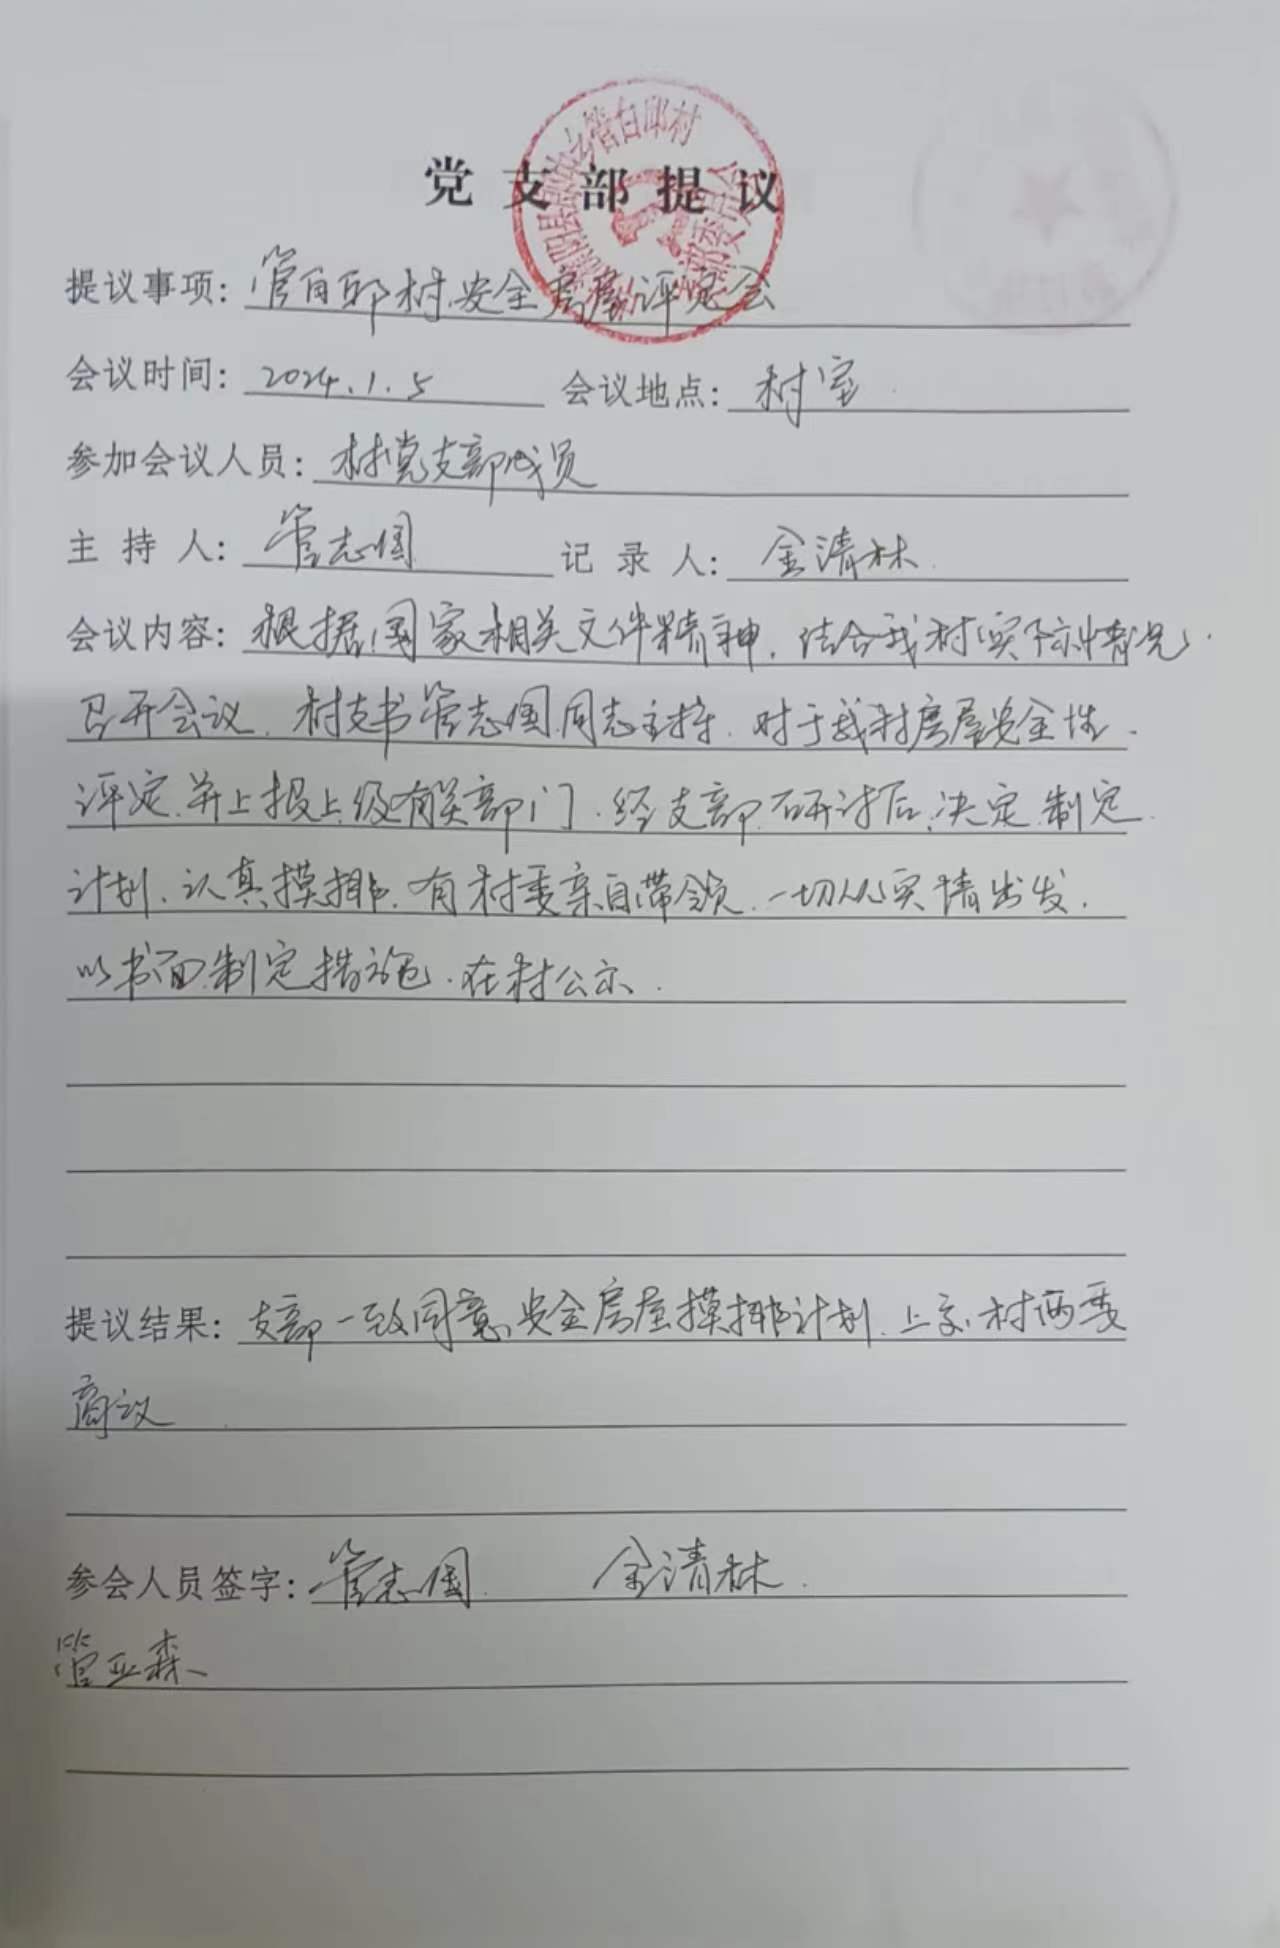 党支部提议
提议事项：管自邱村安全房屋评定会
会议时间：2024.1.5 会议地点：村室
参加会议人员：村党支部成员
主持人：管志国 记录人：金清林
会议内容：根据国家相关文件精神，结合我村实际情况，
已开会议，村支书管志国同志主持，对于我村房屋安全性
评定，并上报上级有关部门，经支部研讨后，决定制定
计划，认真摸排，有村委亲自带领，一切从实情出发，
以书面制定措施，在村公示．
提议结果：支部一致同意，安全房屋摸排计划，上交村两委
商议
参会人员签字：管志国 金清林
管亚森